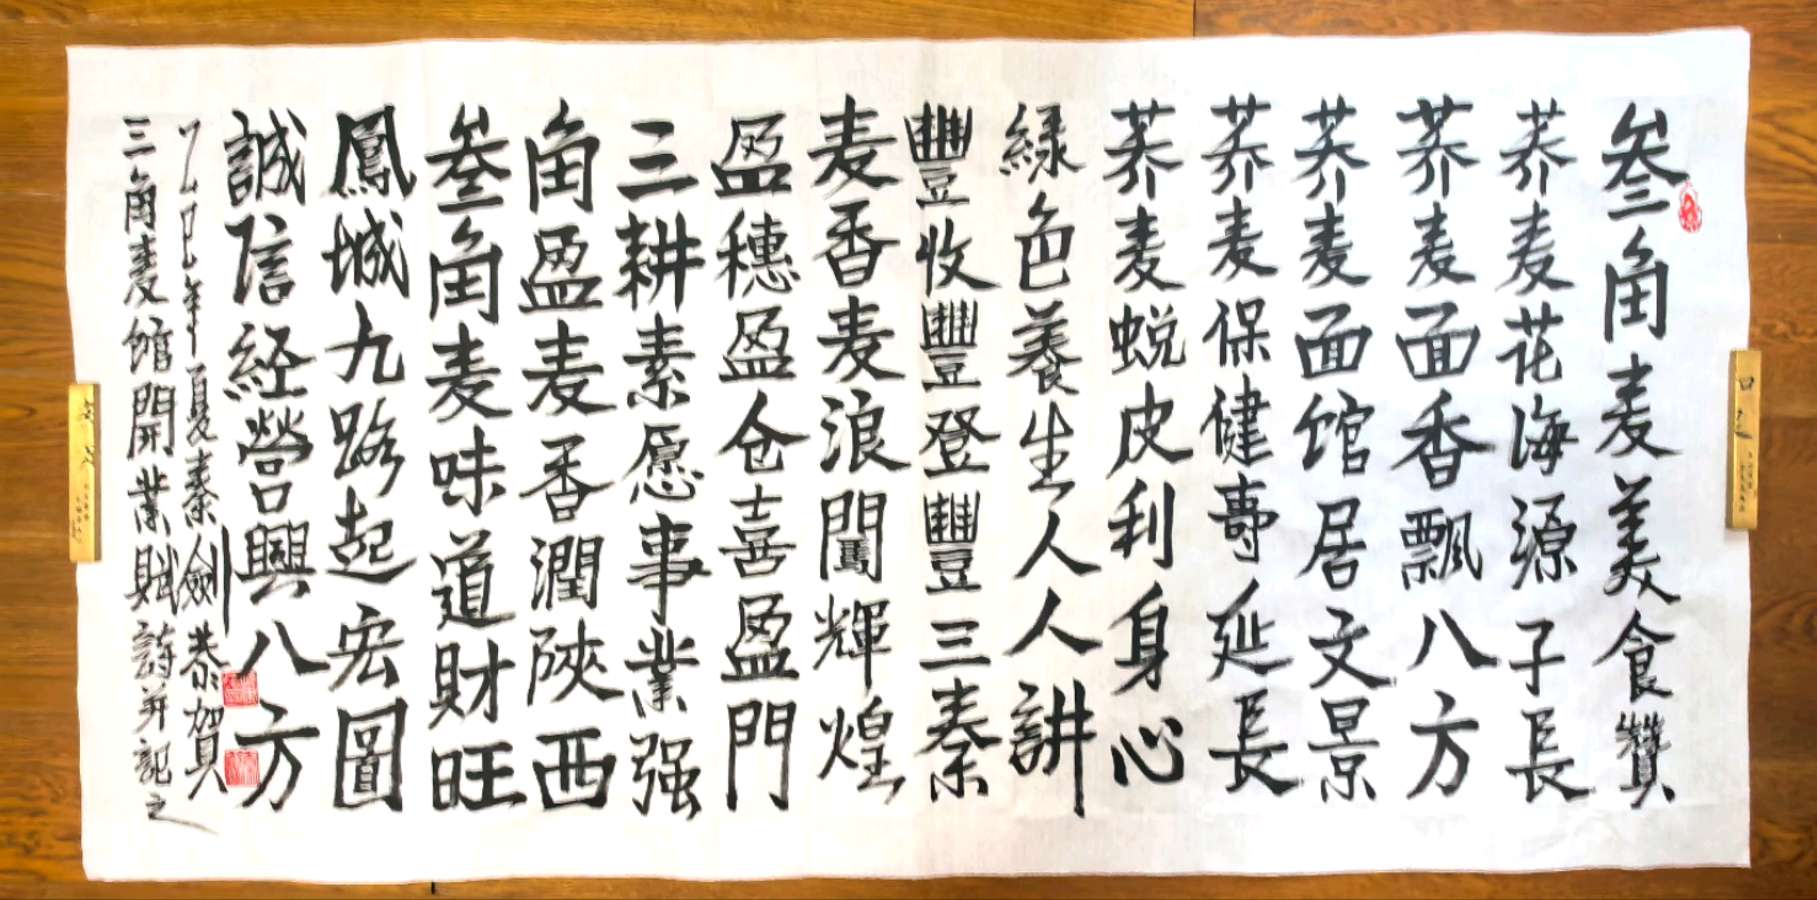 叁角麦美食贊
荞麦花海源子長
荞麦面香飄八方
荞麦面馆居文景
荞麦保健壽延長
荞麦蜕皮利身心
緑色養生人人講
豐收豐登豐三秦
麦香麦浪闖輝煌
盈穗盈仓喜盈門
三耕素愿事業强
角盈麦香潤陝西
叁角麦味道財旺
鳳城九路起宏圖
誠信経營興八方
乙巳年夏秦劍恭賀
三角麦馆開業賦詩并記之